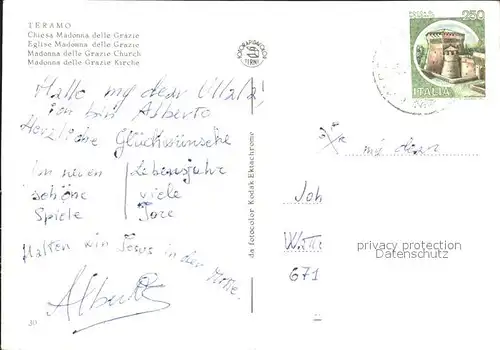 TERAMO
Chiesa Madonna delle Grazie
Eglise Madonna delle Grazie
Madonna delle Grazie Church
Madonna delle Grazie Kirche
Hallo my dear
ich bin Alberto
Herzliche Glückwünsche
im neuen Lebensjahr
schöne viele
Spiele Tore
Halten wir Jesus in der Mitte.
Albert
30
da fotocolor Kodak Ektachrome
250
ITALIA
my dear
Joh
671
privacy protection
Datenschutz